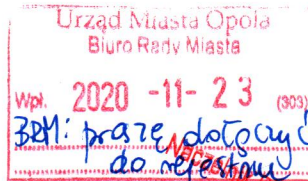 Urząd Miasta Opola
Biuro Rady Miasta
Wpł. 2020 -11- 23 (303)
BRM: proszę dołączyć
do rejestru